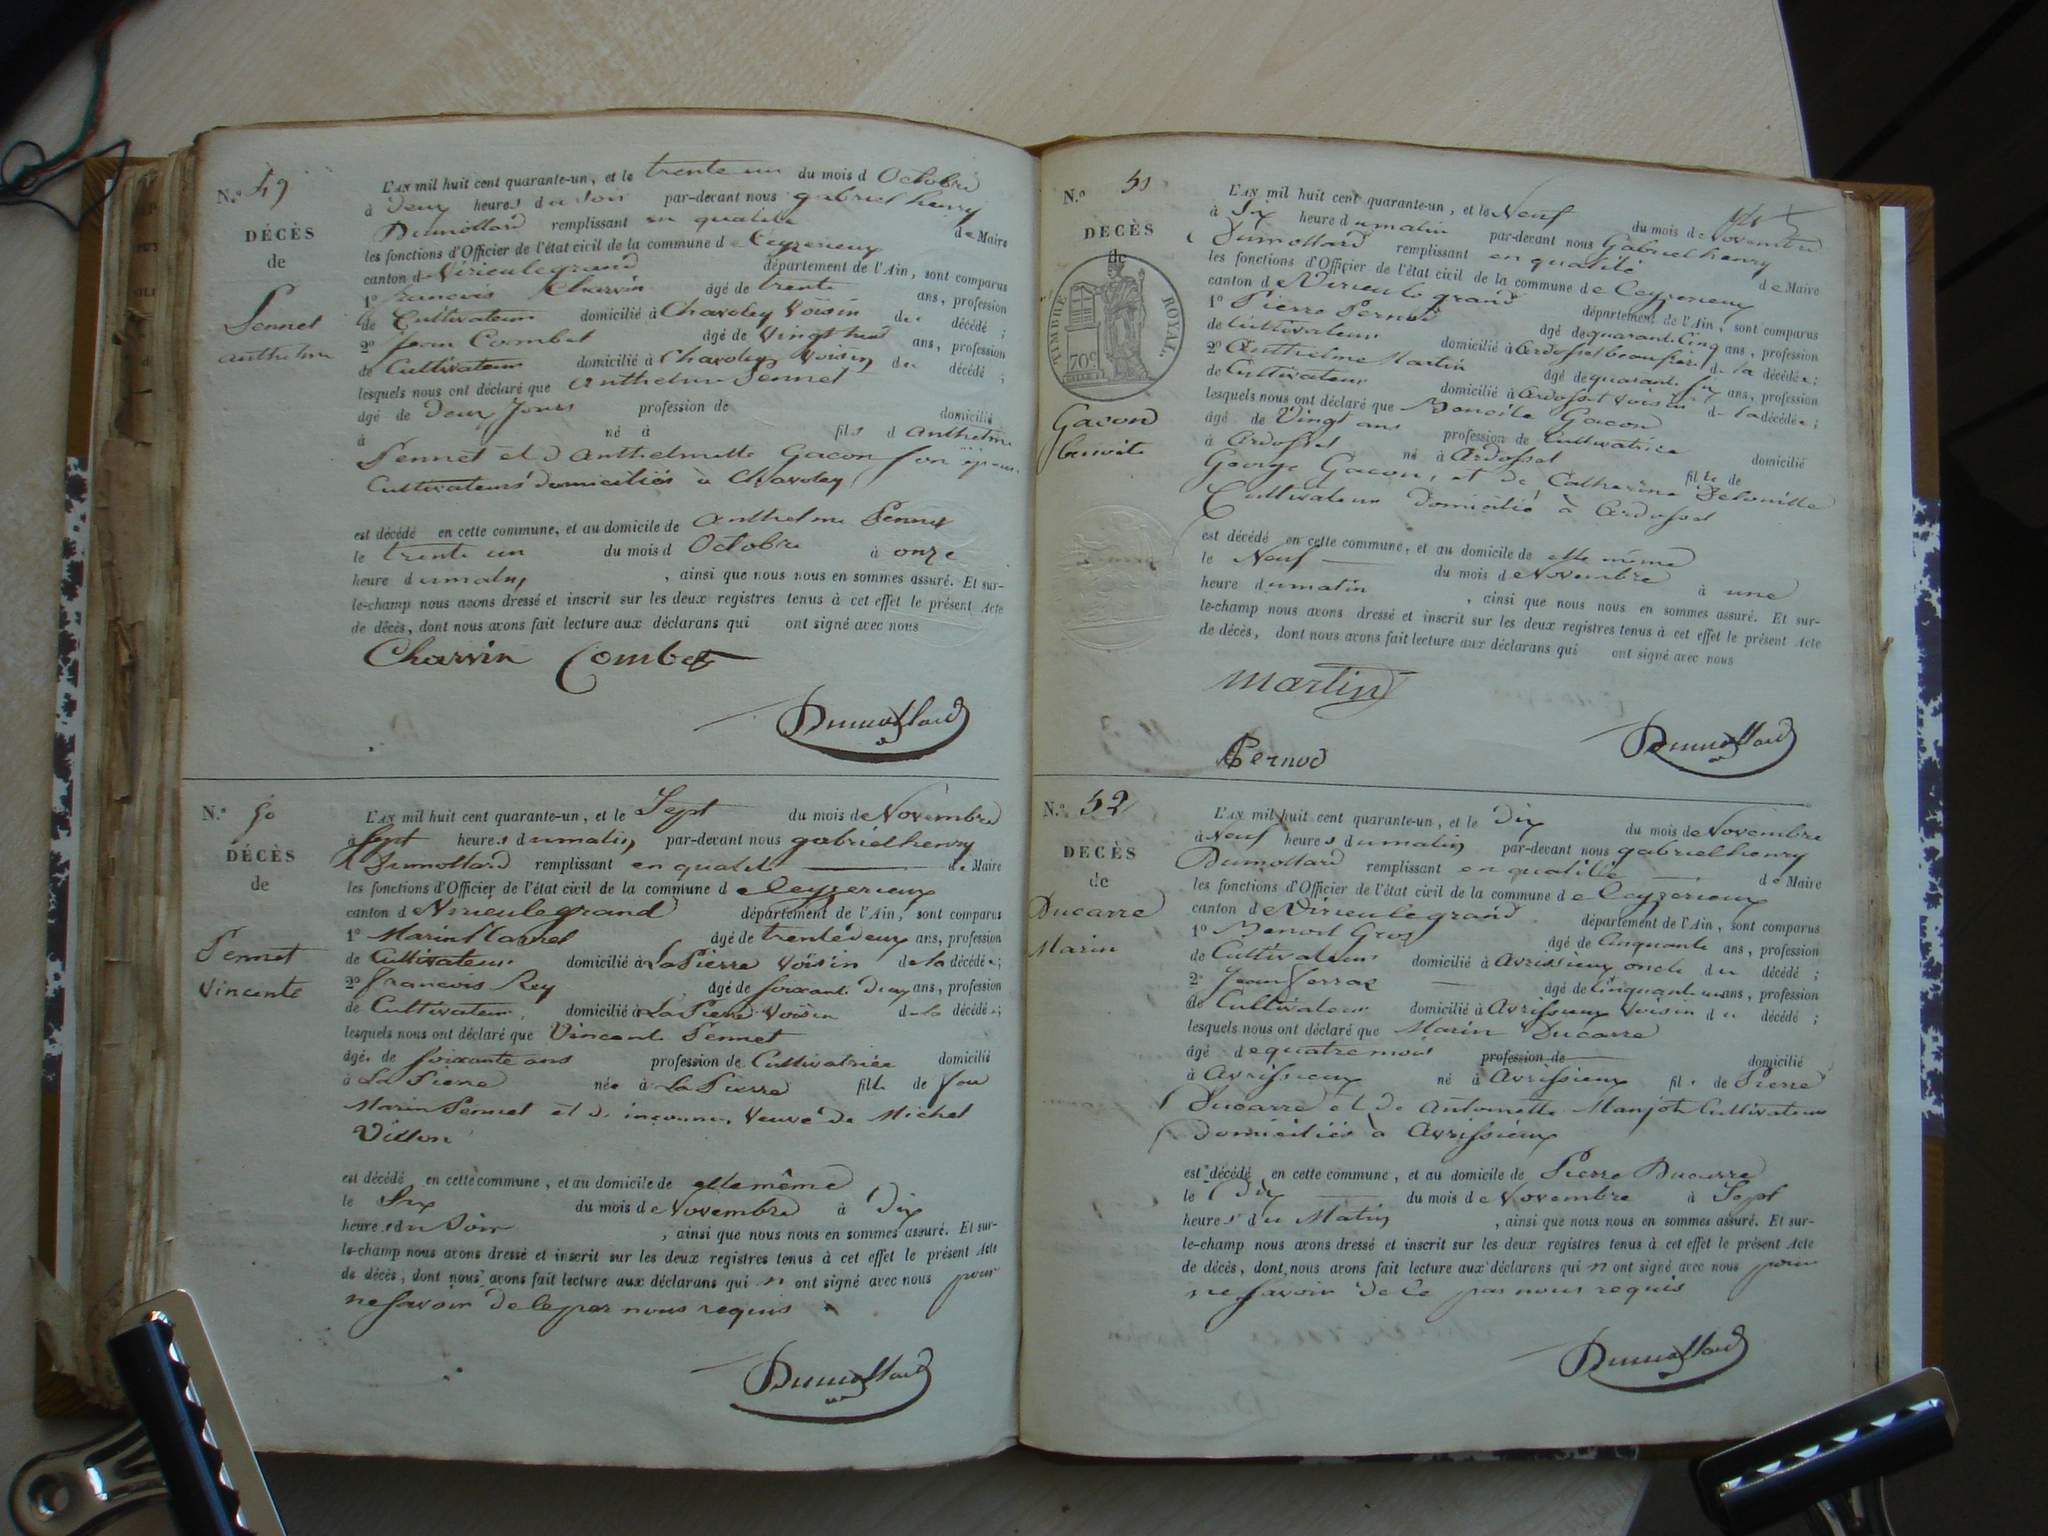 N.° 49
DÉCÈS
de
Pennet
anthelme
L'AN mil huit cent quarante-un, et le trente un du mois d Octobre
à deux heures du soir par-devant nous gabriel henry
Dumollard remplissant en qualité de Maire
les fonctions d'Officier de l'état civil de la commune de Ceyzerieux
canton de Virieulegrand département de l'Ain, sont comparus
1° francois Charvin âgé de trente ans, profession
de Cultivateur domicilié à Chavoley Voisin du décédé ;
2° Jean Combet âgé de Vingt ans, profession
de Cultivateur domicilié à Chavoley Voisin du décédé ;
lesquels nous ont déclaré que Anthelme Pennet
âgé de deux Jours profession de domicilié
à né à fils d anthelme
Pennet et d Anthelmette Gacon son épouse
Cultivateurs domiciliés à Chavoley
est décédé en cette commune, et au domicile de anthelme Pennet
le trente un du mois d Octobre à onze
heure du matin, ainsi que nous nous en sommes assuré. Et sur-
le-champ nous avons dressé et inscrit sur les deux registres tenus à cet effet le présent Acte
de décès, dont nous avons fait lecture aux déclarans qui ont signé avec nous
Charvin Combet
Dumollard
N.° 50
DÉCÈS
de
Pennet
Vincente
L'AN mil huit cent quarante-un, et le Sept du mois de Novembre
à Sept heures du matin, par-devant nous gabriel henry
Dumollard remplissant en qualité de Maire
les fonctions d'Officier de l'état civil de la commune de Ceyzerieux
canton de Virieulegrand département de l'Ain, sont comparus
1° Marin âgé de trente deux ans, profession
de Cultivateur domicilié à La Pierre Voisin de la décédée ;
2° francois Rey âgé de soixante Deux ans, profession
de Cultivateur domicilié à La Pierre Voisin de la décédée ;
lesquels nous ont déclaré que Vincente Pennet
âgée de soixante ans profession de Cultivatrice domicilié
à La Pierre née à La Pierre fille de feu
Marin Pennet et d inconnue, Veuve de Michel
Villon
est décédé en cette commune, et au domicile de elle même
le Six du mois de Novembre à Dix
heures du Soir, ainsi que nous nous en sommes assuré. Et sur-
le-champ nous avons dressé et inscrit sur les deux registres tenus à cet effet le présent Acte
de décès, dont nous avons fait lecture aux déclarans qui n ont signé avec nous pour
ne savoir de ce par nous requis
Dumollard
N.° 51
DÉCÈS
de
TIMBRE ROYAL.
70c
Gacon
benoite
L'AN mil huit cent quarante-un, et le Neuf du mois de Novembre
à Six heure du matin par-devant nous Gabriel henry
Dumollard remplissant en qualité de Maire
les fonctions d'Officier de l'état civil de la commune de Ceyzerieux
canton de Virieu le grand département de l'Ain, sont comparus
1° Pierre Pernod âgé de quarante Cinq ans, profession
de Cultivateur domicilié à Ardosset beau frère de la décédée ;
2° Anthelme Martin âgé de quarante six ans, profession
de Cultivateur domicilié à Ardosset Voisin de la décédée ;
lesquels nous ont déclaré que Benoite Gacon
âgé de Vingt ans profession de Cultivatrice domicilié
à Ardosset né à Ardosset fille de
George Gacon, et de Catherine
Cultivateur domicilié à Ardosset
est décédé en cette commune, et au domicile de elle même
le Neuf du mois de Novembre à une
heure du matin, ainsi que nous nous en sommes assuré. Et sur-
le-champ nous avons dressé et inscrit sur les deux registres tenus à cet effet le présent Acte
de décès, dont nous avons fait lecture aux déclarans qui ont signé avec nous
Martin
Dumollard
Pernod
N.° 52
DÉCÈS
de
Ducarre
Marin
L'AN mil huit cent quarante-un, et le Dix du mois de Novembre
à Neuf heures du matin, par-devant nous gabriel henry
Dumollard remplissant en qualité de Maire
les fonctions d'Officier de l'état civil de la commune de Ceyzerieux
canton de Virieulegrand département de l'Ain, sont comparus
1° Benoit Gros âgé de Cinquante ans, profession
de Cultivateur domicilié à Avrissieux oncle du décédé ;
2° Jean âgé de Cinquante un ans, profession
de Cultivateur domicilié à Avrissieux Voisin du décédé ;
lesquels nous ont déclaré que Marin Ducarre
âgé de quatre mois profession de domicilié
à Avrissieux né à Avrissieux fils de Pierre
Ducarre et de Antoinette Manjot Cultivateurs
domiciliés à Avrissieux
est décédé en cette commune, et au domicile de Pierre Ducarre
le Dix du mois de Novembre à Sept
heures du Matin, ainsi que nous nous en sommes assuré. Et sur-
le-champ nous avons dressé et inscrit sur les deux registres tenus à cet effet le présent Acte
de décès, dont nous avons fait lecture aux déclarans qui n ont signé avec nous pour
ne savoir de ce par nous requis
Dumollard